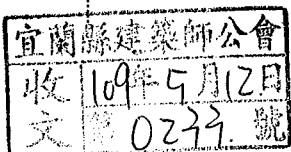 宜蘭縣建築師公會
收文
109年5月12日
第0233號